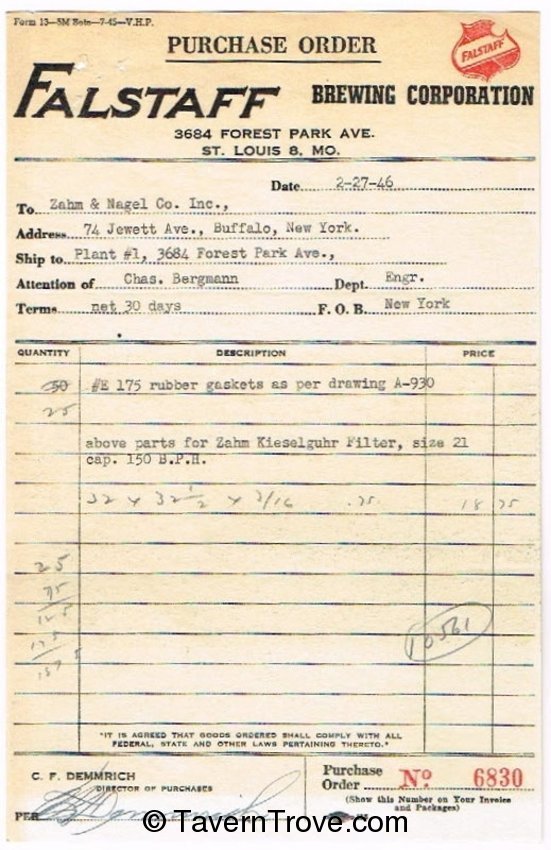 Form 13—5M Sets—7-45—V.H.P.
PURCHASE ORDER
FALSTAFF
FALSTAFF BREWING CORPORATION
3684 FOREST PARK AVE.
ST. LOUIS 8, MO.
Date 2-27-46
To Zahm & Nagel Co. Inc.,
Address 74 Jewett Ave., Buffalo, New York.
Ship to Plant #1, 3684 Forest Park Ave.,
Attention of Chas. Bergmann Dept. Engr.
Terms net 30 days F. O. B. New York
QUANTITY DESCRIPTION PRICE
50 #E 175 rubber gaskets as per drawing A-930
25
above parts for Zahm Kieselguhr Filter, size 21
cap. 150 B.P.H.
32 x 32 1/2 x 3/16 .75 18 75
25
75
125
175
1875
10561
"IT IS AGREED THAT GOODS ORDERED SHALL COMPLY WITH ALL
FEDERAL, STATE AND OTHER LAWS PERTAINING THERETO."
C. F. DEMMRICH
DIRECTOR OF PURCHASES
Purchase
Order No 6830
(Show this Number on Your Invoice
and Packages)
PER C F Demmrich
©TavernTrove.com